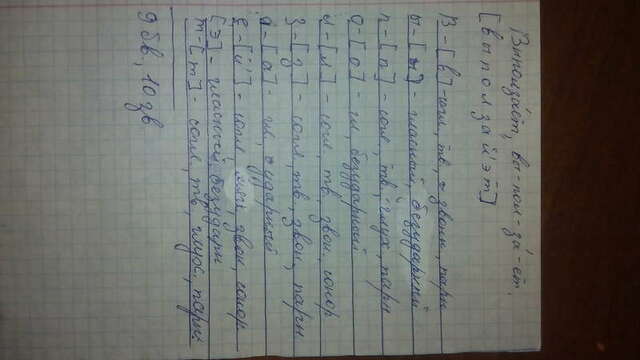 Выползает, вы-пол-за́-ет.
[выползай'эт]
В-[в]-согл, тв, звонк, парн
ы-[ы]-гласный, безударный
п-[п]-согл, тв, глух, парн
о-[о]-гл, безударный
л-[л]-согл, тв, звон, сонор
з-[з]-согл, тв, звон, парн
а-[а]-гл, ударный
е-[й']-согл, мягк, звон, сонор
[э]-гласный, безударн
т-[т]-согл, тв, глухо, парный
9 бв, 10 зв